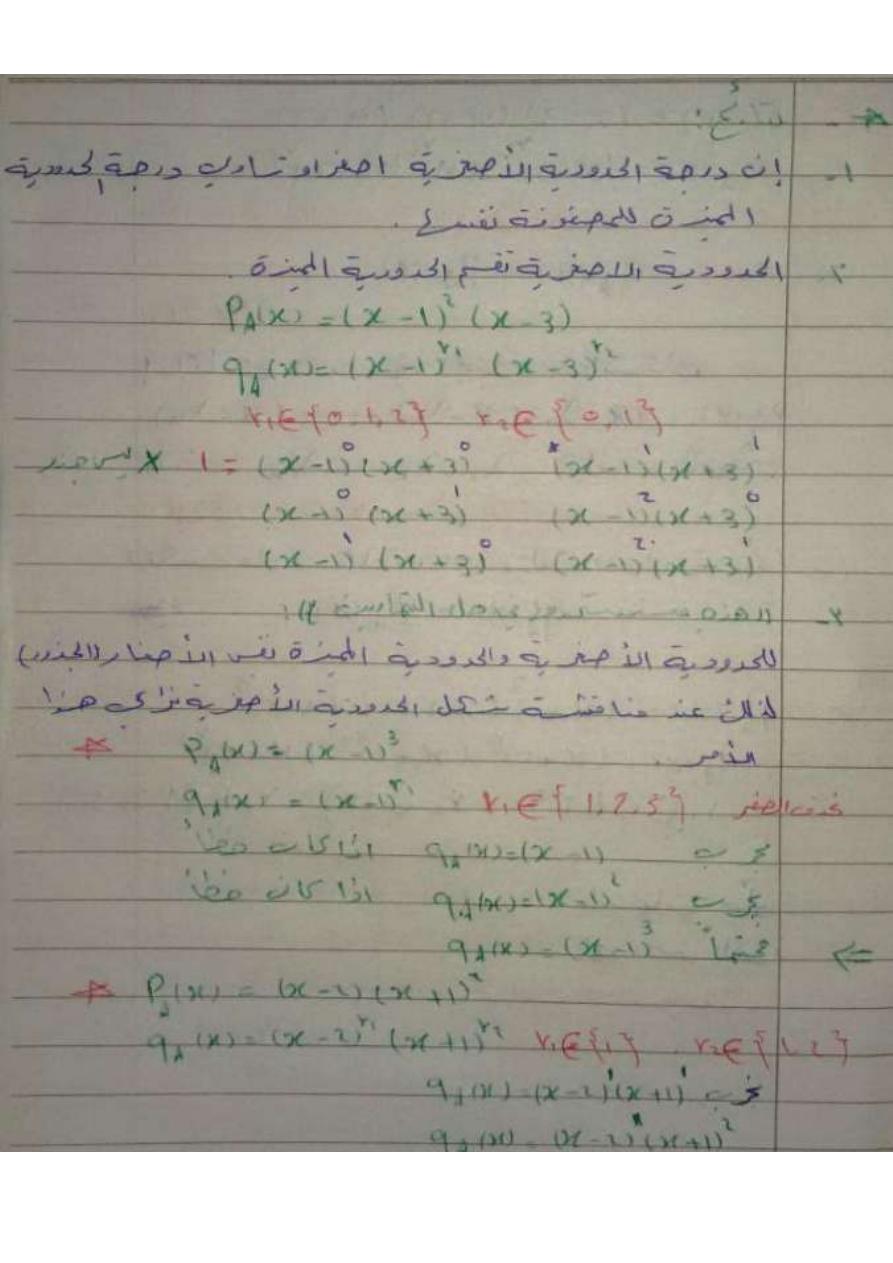 نتائج:
1- إن درجة الحدودية الأصغرية اصغر او تساوي درجة الحدودية
المميزة للمصفوفة نفسها.
2- الحدودية الاصغرية تقسم الحدودية المميزة.
P_A(x) = (x - 1)² (x - 3)
q_A(x) = (x - 1)^r₁ (x - 3)^r₂
r₁ ∈ {0, 1, 2} r₂ ∈ {0, 1}
1 = (x-1)⁰ (x+3)⁰ (x-1)¹(x+3)¹
(x-1)⁰ (x+3)¹ (x-1)²(x+3)⁰
(x-1)¹ (x+3)⁰ (x-1)²(x+3)¹
3- حل التمارين
للحدودية الأصغرية والحدودية المميزة نفس الأصفار (الجذور)
لذلك عند مناقشة شكل الحدودية الأصغرية نراعي هذا
الأمر.
P_A(x) = (x - 1)³
q_A(x) = (x-1)^r₁ r₁ ∈ {1, 2, 3} نحذف الصفر
نجرب q_A(x) = (x - 1) اذا كانت خطأ
نجرب q_A(x) = (x - 1)² اذا كان خطأ
⇐ حتماً q_A(x) = (x - 1)³
P_A(x) = (x - 2) (x + 1)²
q_A(x) = (x - 2)^r₁ (x + 1)^r₂ r₁ ∈ {1} r₂ ∈ {1, 2}
نجرب q_A(x) = (x - 2)¹(x + 1)¹
q_A(x) = (x - 2)¹(x + 1)²